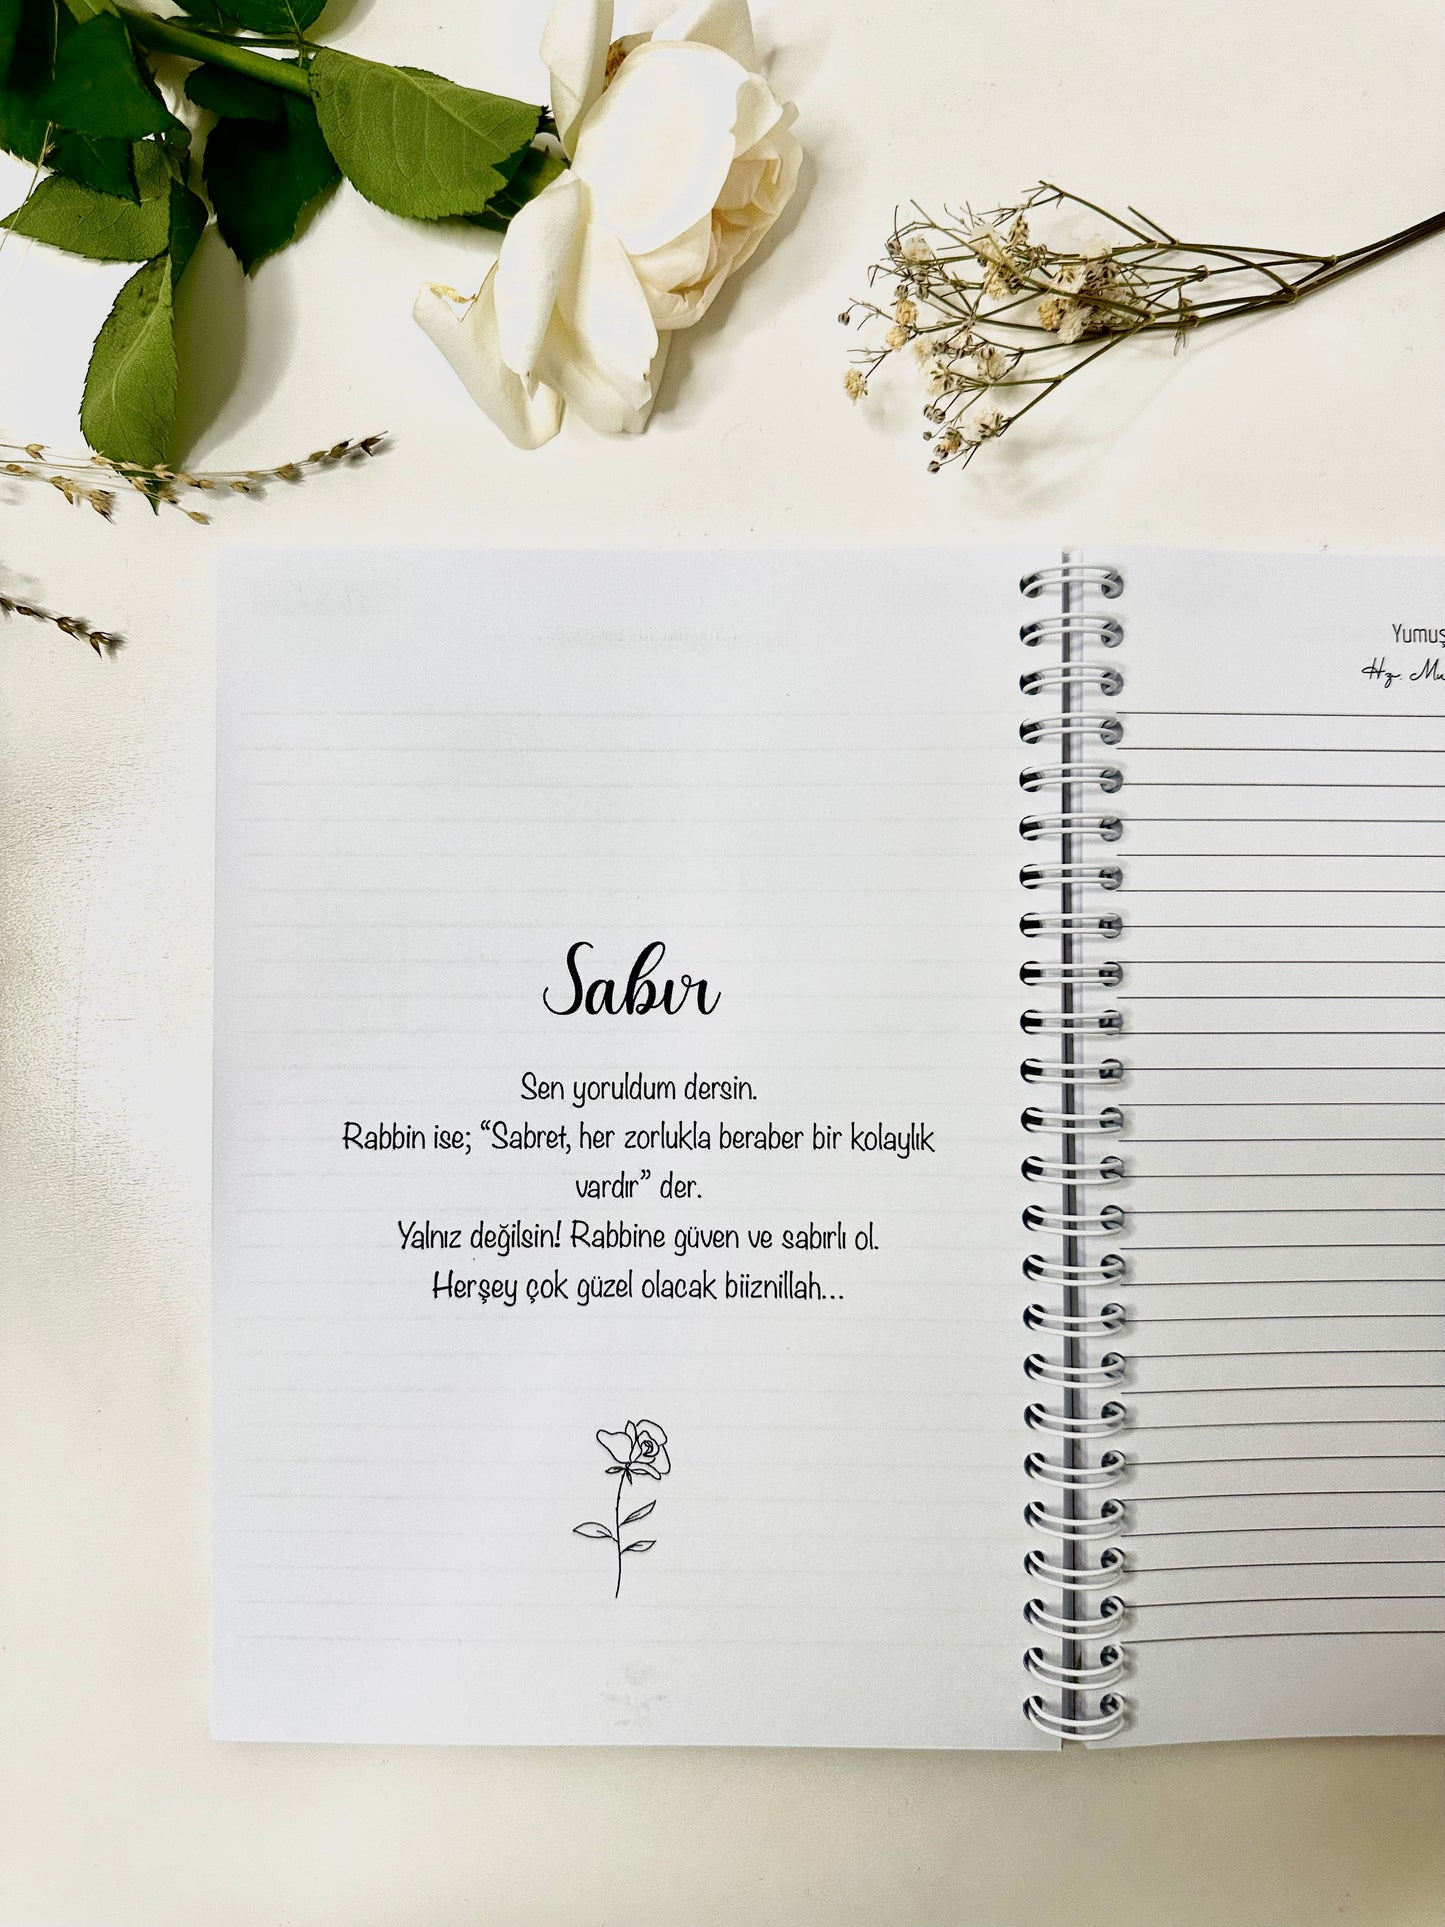 Sabır
Sen yoruldum dersin.
Rabbin ise; “Sabret, her zorlukla beraber bir kolaylık
vardır” der.
Yalnız değilsin! Rabbine güven ve sabırlı ol.
Herşey çok güzel olacak biiznillah...
Hz.